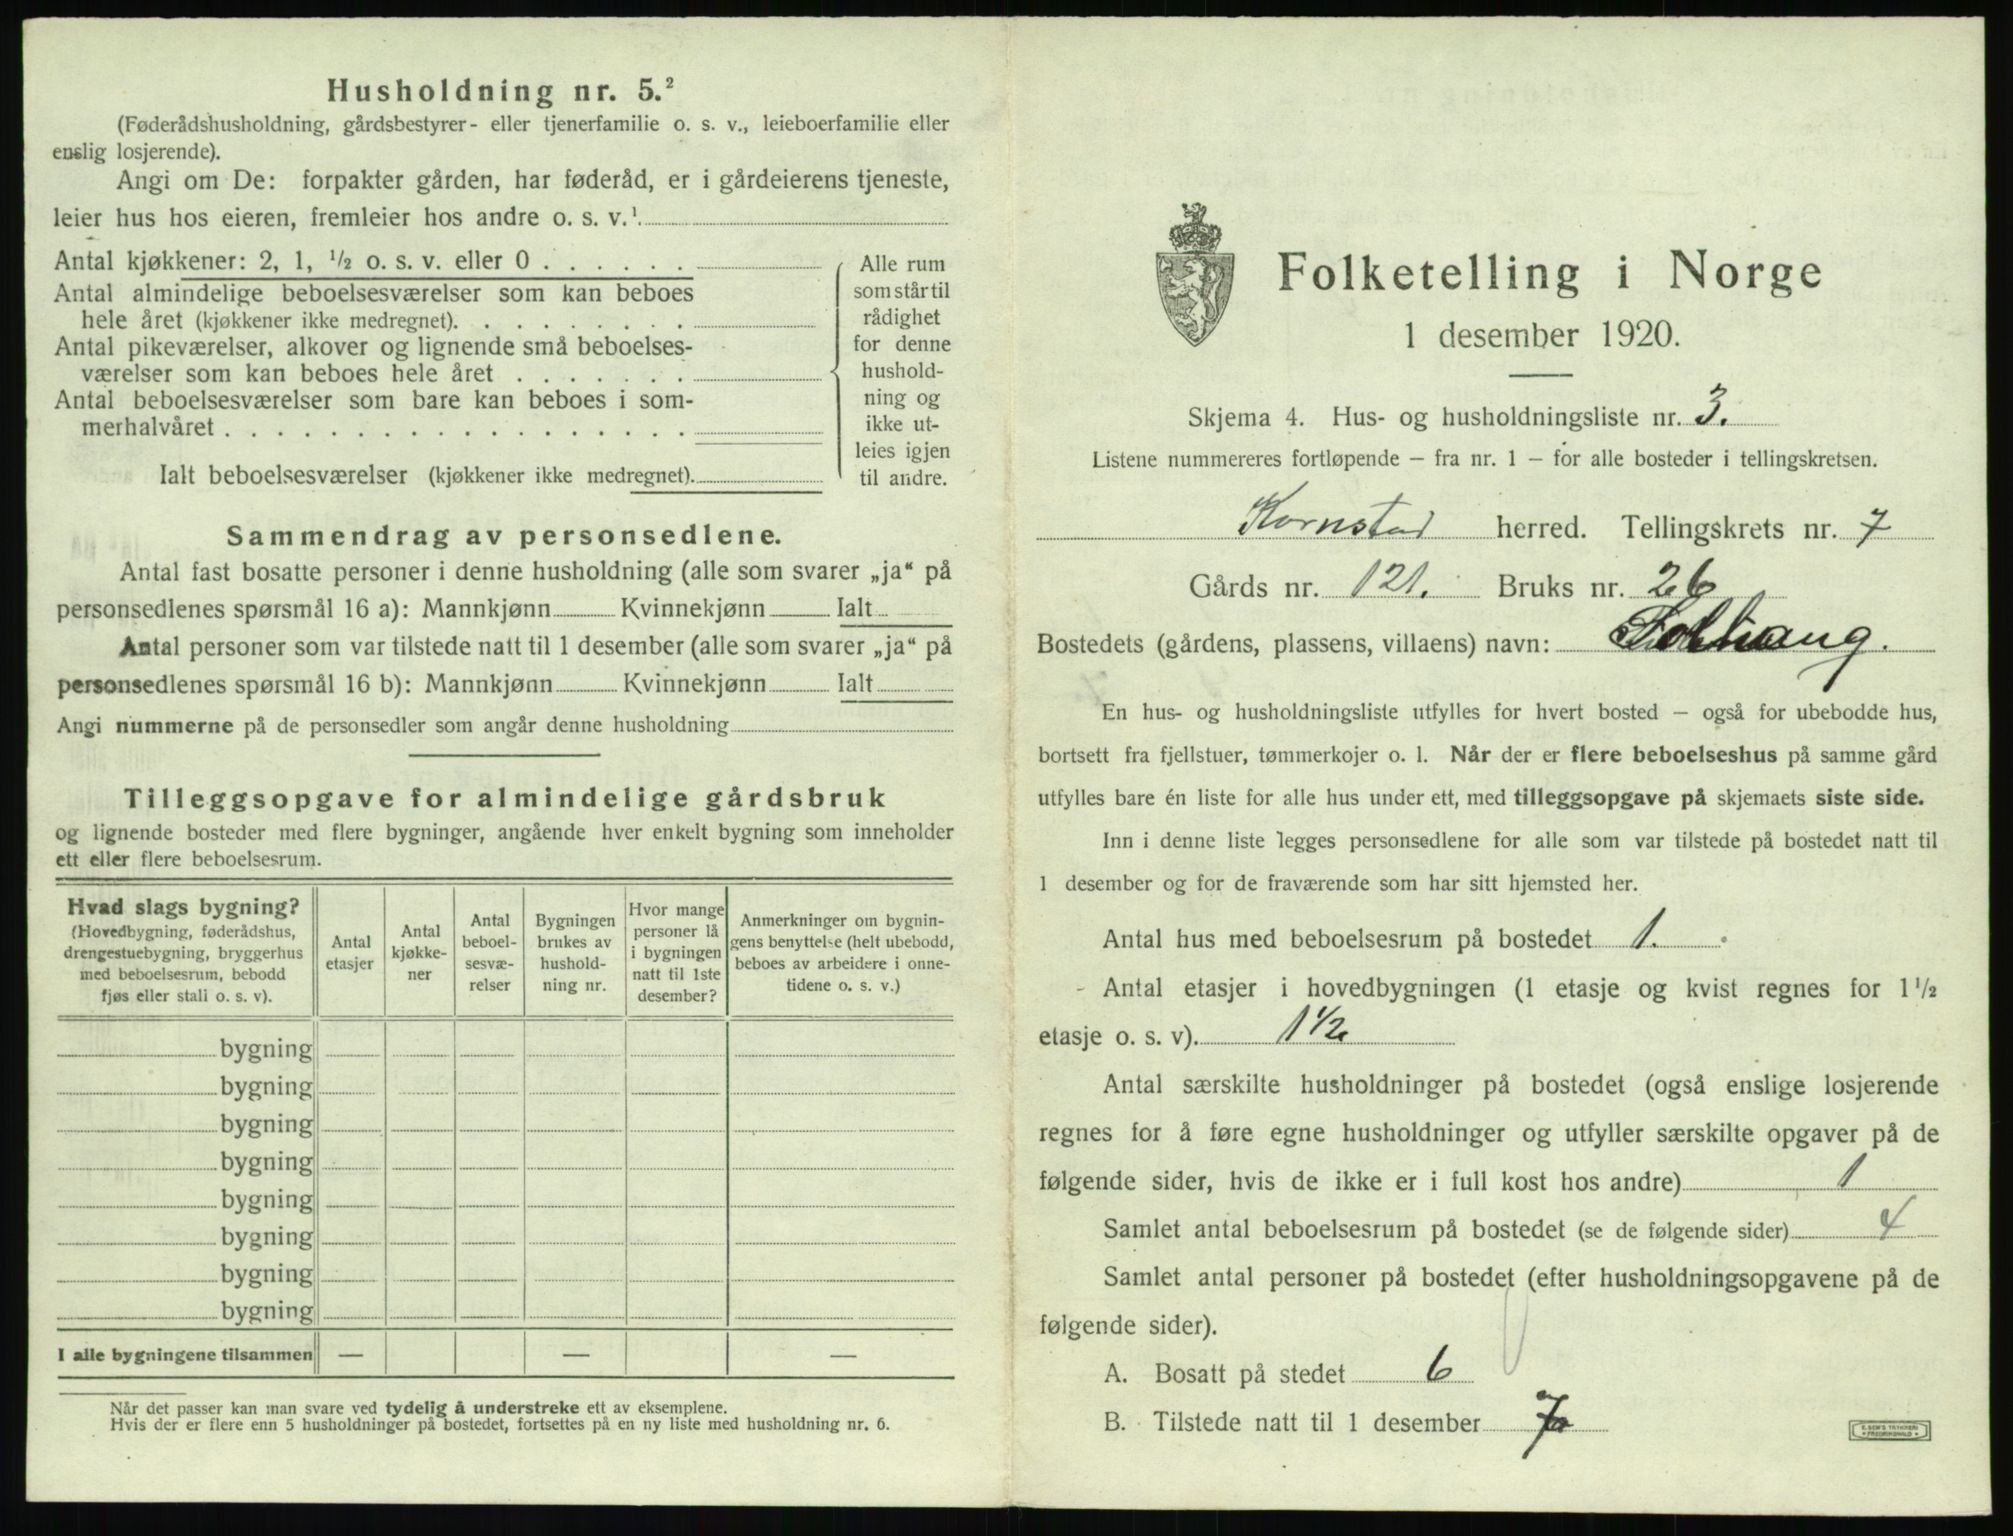 Husholdning nr. 5.²
(Føderådshusholdning, gårdsbestyrer- eller tjenerfamilie o. s. v., leieboerfamilie eller
enslig losjerende).
Angi om De: forpakter gården, har føderåd, er i gårdeierens tjeneste,
leier hus hos eieren, fremleier hos andre o. s. v.¹
Antal kjøkkener: 2, 1, ½ o. s. v. eller 0 . . . . . .
Antal almindelige beboelsesværelser som kan beboes
hele året (kjøkkener ikke medregnet). . . . . . . . .
Antal pikeværelser, alkover og lignende små beboelses-
værelser som kan beboes hele året . . . . . . .
Antal beboelsesværelser som bare kan beboes i som-
merhalvåret . . . . . . . . . . . . . . . . . .
Ialt beboelsesværelser (kjøkkener ikke medregnet).
Alle rum
som står til
rådighet
for denne
hushold-
ning og
ikke ut-
leies igjen
til andre.
Sammendrag av personsedlene.
Antal fast bosatte personer i denne husholdning (alle som svarer „ja“ på
personsedlenes spørsmål 16 a): Mannkjønn Kvinnekjønn Ialt
Antal personer som var tilstede natt til 1 desember (alle som svarer „ja“ på
personsedlenes spørsmål 16 b): Mannkjønn Kvinnekjønn Ialt
Angi nummerne på de personsedler som angår denne husholdning
Tilleggsopgave for almindelige gårdsbruk
og lignende bosteder med flere bygninger, angående hver enkelt bygning som inneholder
ett eller flere beboelsesrum.
Hvad slags bygning?
(Hovedbygning, føderådshus,
drengestuebygning, bryggerhus
med beboelsesrum, bebodd
fjøs eller stall o. s. v).
Antal
etasjer
Antal
kjøkke-
ner
Antal
beboel-
sesvæ-
relser
Bygningen
brukes av
hushold-
ning nr.
Hvor mange
personer lå
i bygningen
natt til 1ste
desember?
Anmerkninger om bygnin-
gens benyttelse (helt ubebodd,
beboes av arbeidere i onne-
tidene o. s. v.)
bygning
bygning
bygning
bygning
bygning
bygning
bygning
bygning
I alle bygningene tilsammen — — —
Når det passer kan man svare ved tydelig å understreke ett av eksemplene.
Hvis der er flere enn 5 husholdninger på bostedet, fortsettes på en ny liste med husholdning nr. 6.
Folketelling i Norge
1 desember 1920.
Skjema 4. Hus- og husholdningsliste nr. 3.
Listene nummereres fortløpende – fra nr. 1 – for alle bosteder i tellingskretsen.
Kornstad herred. Tellingskrets nr. 7
Gårds nr. 121. Bruks nr. 26
Bostedets (gårdens, plassens, villaens) navn:
En hus- og husholdningsliste utfylles for hvert bosted – også for ubebodde hus,
bortsett fra fjellstuer, tømmerkojer o. l. Når der er flere beboelseshus på samme gård
utfylles bare én liste for alle hus under ett, med tilleggsopgave på skjemaets siste side.
Inn i denne liste legges personsedlene for alle som var tilstede på bostedet natt til
1 desember og for de fraværende som har sitt hjemsted her.
Antal hus med beboelsesrum på bostedet 1.
Antal etasjer i hovedbygningen (1 etasje og kvist regnes for 1½
etasje o. s. v). 1½
Antal særskilte husholdninger på bostedet (også enslige losjerende
regnes for å føre egne husholdninger og utfyller særskilte opgaver på de
følgende sider, hvis de ikke er i full kost hos andre) 1
Samlet antal beboelsesrum på bostedet (se de følgende sider) 4
Samlet antal personer på bostedet (efter husholdningsopgavene på de
følgende sider).
A. Bosatt på stedet 6
B. Tilstede natt til 1 desember 7